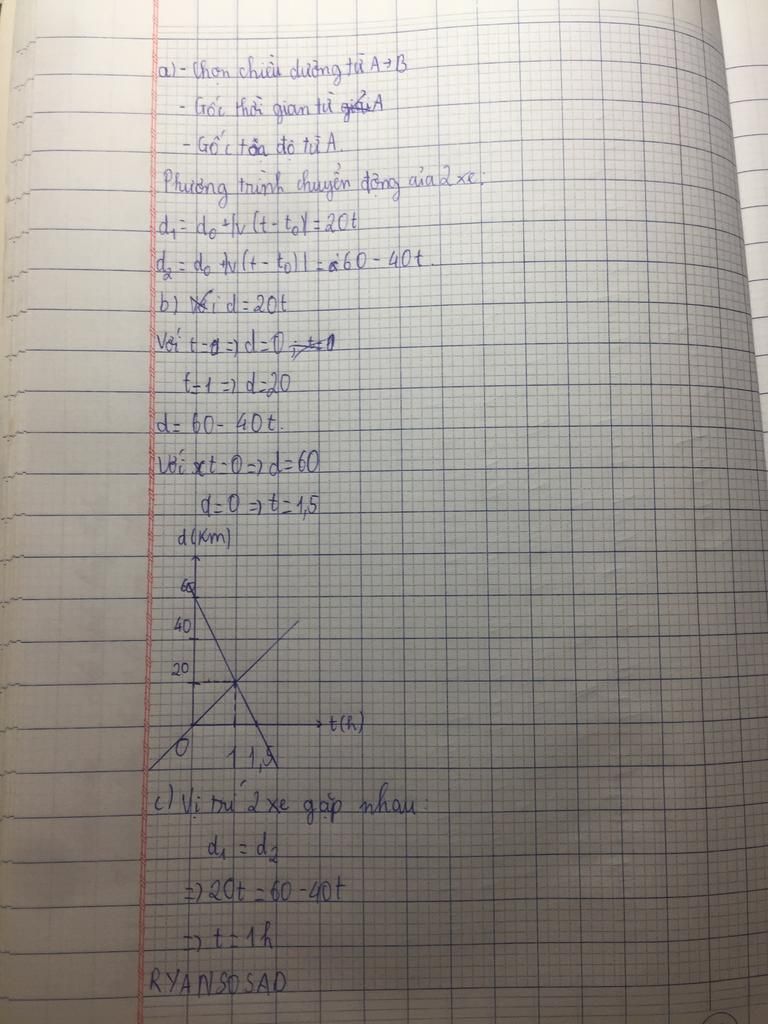 a) - Chọn chiều dương từ A→B
- Gốc thời gian từ A
- Gốc tọa độ từ A.
Phương trình chuyển động của 2 xe:
d₁ = d₀ + v(t - t₀) = 20t
d₂ = d₀ + v(t - t₀) = 60 - 40t.
b) Với d = 20t
Với t = 0 => d = 0
t = 1 => d = 20
d = 60 - 40t.
Với t = 0 => d = 60
d = 0 => t = 1,5
d (Km)
60
40
20
t(h)
0
1 1,5
c) Vị trí 2 xe gặp nhau:
d₁ = d₂
=> 20t = 60 - 40t
=> t = 1h
RYANSOSAD